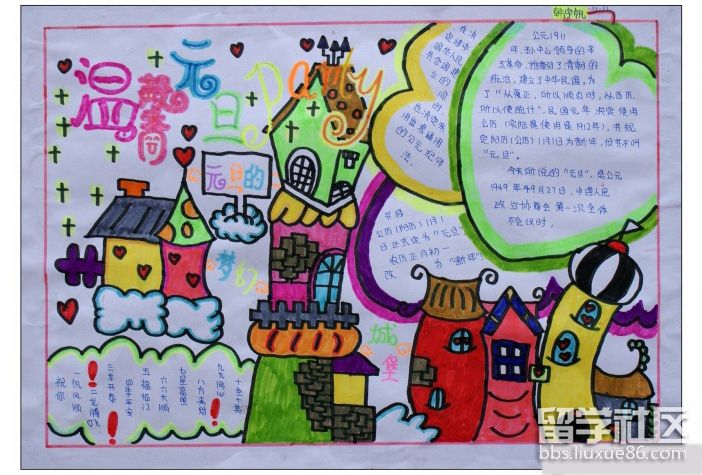 温馨
元旦Party
元旦的
梦幻
城堡
在决
中
国华人民
共合国建
立的
同时
也决定采
用世界通用
的公元纪年
法。
公元1911
年,孙中山领导的辛
亥革命,推翻了清朝的
统治,建立了中华民国,为
了"从夏正,所以顺农时,从西历,
所以便统计",民国元年决定使用
公历(实际是使用是1912年),并规
定阳历(公历)1月1日为新年,但并不叫
"元旦"。
今天所说的"元旦",是公元
1949年9月27日,中国人民
政治协商会第一次全体
会议时,
并将
公历(阳历)1月1
日正式定为"元旦"
农历正月初一
改为"新年"
祝你
一帆风顺
二龙腾飞
三羊开泰
四季平安
五福临门
六六大顺
七星高照
八方来财
九九同心
十全十美
留学社区
bbs.liuxue86.com